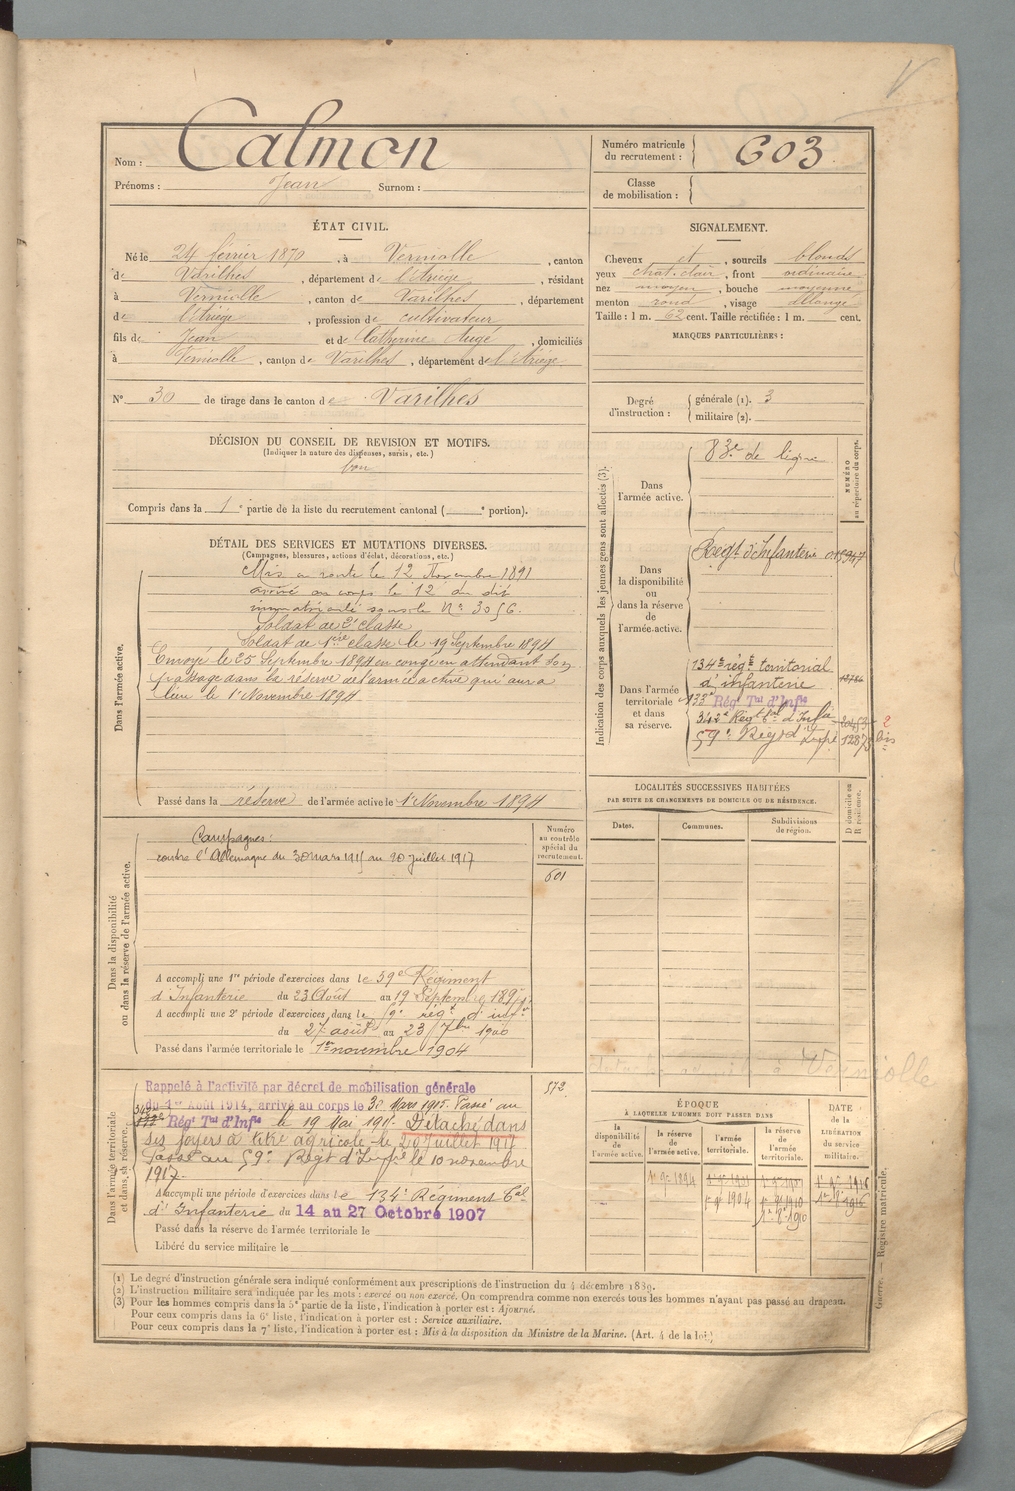 Nom : Calmon
Prénoms : Jean Surnom :
Numéro matricule du recrutement : 603
Classe de mobilisation :
ÉTAT CIVIL.
Né le 24 février 1870, à Verniolle, canton
de Varilhes, département de l'Ariège, résidant
à Verniolle, canton de Varilhes, département
de l'Ariège, profession de cultivateur
fils de Jean et de Catherine Augé, domiciliés
à Verniolle, canton de Varilhes, département de l'Ariège.
N° 30 de tirage dans le canton de Varilhes
SIGNALEMENT.
Cheveux et, sourcils blonds
yeux chat. clair, front ordinaire
nez moyen, bouche moyenne
menton rond, visage allongé
Taille : 1 m. 62 cent. Taille rectifiée : 1 m. cent.
MARQUES PARTICULIÈRES :
Degré d'instruction : générale (1). 3
militaire (2).
DÉCISION DU CONSEIL DE REVISION ET MOTIFS.
(Indiquer la nature des dispenses, sursis, etc.)
bon
Compris dans la 1e partie de la liste du recrutement cantonal ( e portion).
DÉTAIL DES SERVICES ET MUTATIONS DIVERSES.
(Campagnes, blessures, actions d'éclat, décorations, etc.)
Dans l'armée active.
Mis en route le 12 Novembre 1891
arrivé au corps le 12 du dit
immatriculé sous le N° 3056.
Soldat de 2e classe
Soldat de 1ère classe le 19 Septembre 1894
Envoyé le 25 Septembre 1894 en congé en attendant son
passage dans la réserve de l'armée active qui aura
lieu le 1er Novembre 1894
Passé dans la réserve de l'armée active le 1er Novembre 1894
Indication des corps auxquels les jeunes gens sont affectés (3).
NUMÉRO au répertoire du corps.
Dans l'armée active.
83e de ligne
Dans la disponibilité ou dans la réserve de l'armée active.
Régt d'Infanterie
Dans l'armée territoriale et dans sa réserve.
134e régt territorial
d'infanterie
133e Régt Tal d'Infie
342e Régt tal d'Infie
59e Régt d'Infie 12873 bis
LOCALITÉS SUCCESSIVES HABITÉES
PAR SUITE DE CHANGEMENTS DE DOMICILE OU DE RÉSIDENCE.
Dates. Communes. Subdivisions de région. D domicile ou R résidence.
Dans la disponibilité ou dans la réserve de l'armée active.
Numéro au contrôle spécial du recrutement.
601
Campagnes :
contre l'Allemagne du 30 mars 1915 au 20 juillet 1917
A accompli une 1re période d'exercices dans le 59e Régiment
d'Infanterie du 23 Août au 19 Septembre
A accompli une 2e période d'exercices dans le 9e régt d'infie
du 27 août au 23 7bre 1900
Passé dans l'armée territoriale le 1er novembre 1904
Verniolle
Dans l'armée territoriale et dans sa réserve.
572
Rappelé à l'activité par décret de mobilisation générale
du 1er Août 1914, arrivé au corps le 30 Mars 1915. Passé au
342e Régt Tal d'Infie le 19 Mai 1915. Détaché dans
ses foyers à titre agricole le 20 Juillet 1917
Passé au 59e Régt d'Infie le 10 novembre
1917.
A accompli une période d'exercices dans le 134e Régiment Tal
d'Infanterie du 14 au 27 Octobre 1907
Passé dans la réserve de l'armée territoriale le
Libéré du service militaire le
ÉPOQUE
À LAQUELLE L'HOMME DOIT PASSER DANS
DATE de la LIBÉRATION du service militaire.
la disponibilité de l'armée active.
la réserve de l'armée active.
l'armée territoriale.
la réserve de l'armée territoriale.
1er 9e 1894
1er 9e 1904
1er 9e 1910
(1) Le degré d'instruction générale sera indiqué conformément aux prescriptions de l'instruction du 4 décembre 1889.
(2) L'instruction militaire sera indiquée par les mots : exercé ou non exercé. On comprendra comme non exercés tous les hommes n'ayant pas passé au drapeau.
(3) Pour les hommes compris dans la 5e partie de la liste, l'indication à porter est : Ajourné.
Pour ceux compris dans la 6e liste, l'indication à porter est : Service auxiliaire.
Pour ceux compris dans la 7e liste, l'indication à porter est : Mis à la disposition du Ministre de la Marine. (Art. 4 de la loi.)
Guerre. — Registre matricule.